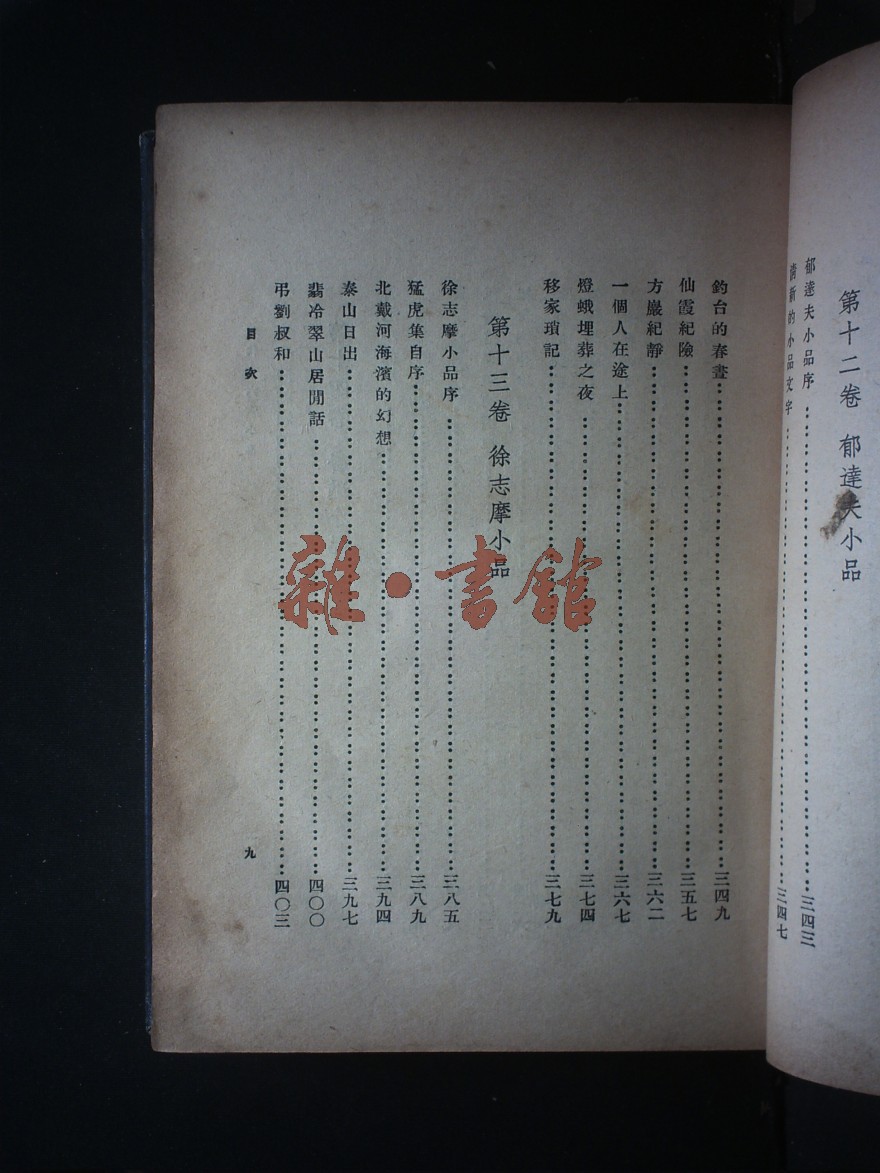 第十二卷 郁達夫小品
郁達夫小品序……三四三
清新的小品文字……三四七
釣台的春晝……三四九
仙霞紀險……三五七
方巖紀靜……三六二
一個人在途上……三六七
燈蛾埋葬之夜……三七四
移家瑣記……三七九
第十三卷 徐志摩小品
徐志摩小品序……三八五
猛虎集自序……三八九
北戴河海濱的幻想……三九四
泰山日出……三九七
翡冷翠山居閒話……四〇〇
弔劉叔和……四〇三
目次
九
雜·書館